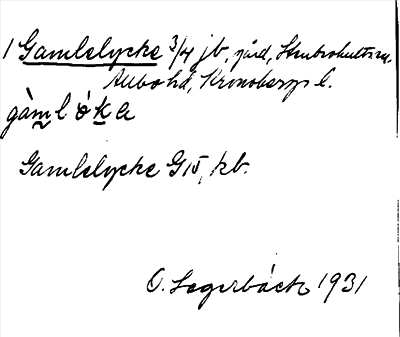 1 Gamlelycke 3/4 jb, gård, Stenbrohults sn.
Allbo hd, Kronobergs l.
gàml ó̀ka
Gamlelycke G15, kb.
O. Segerbäck 1931